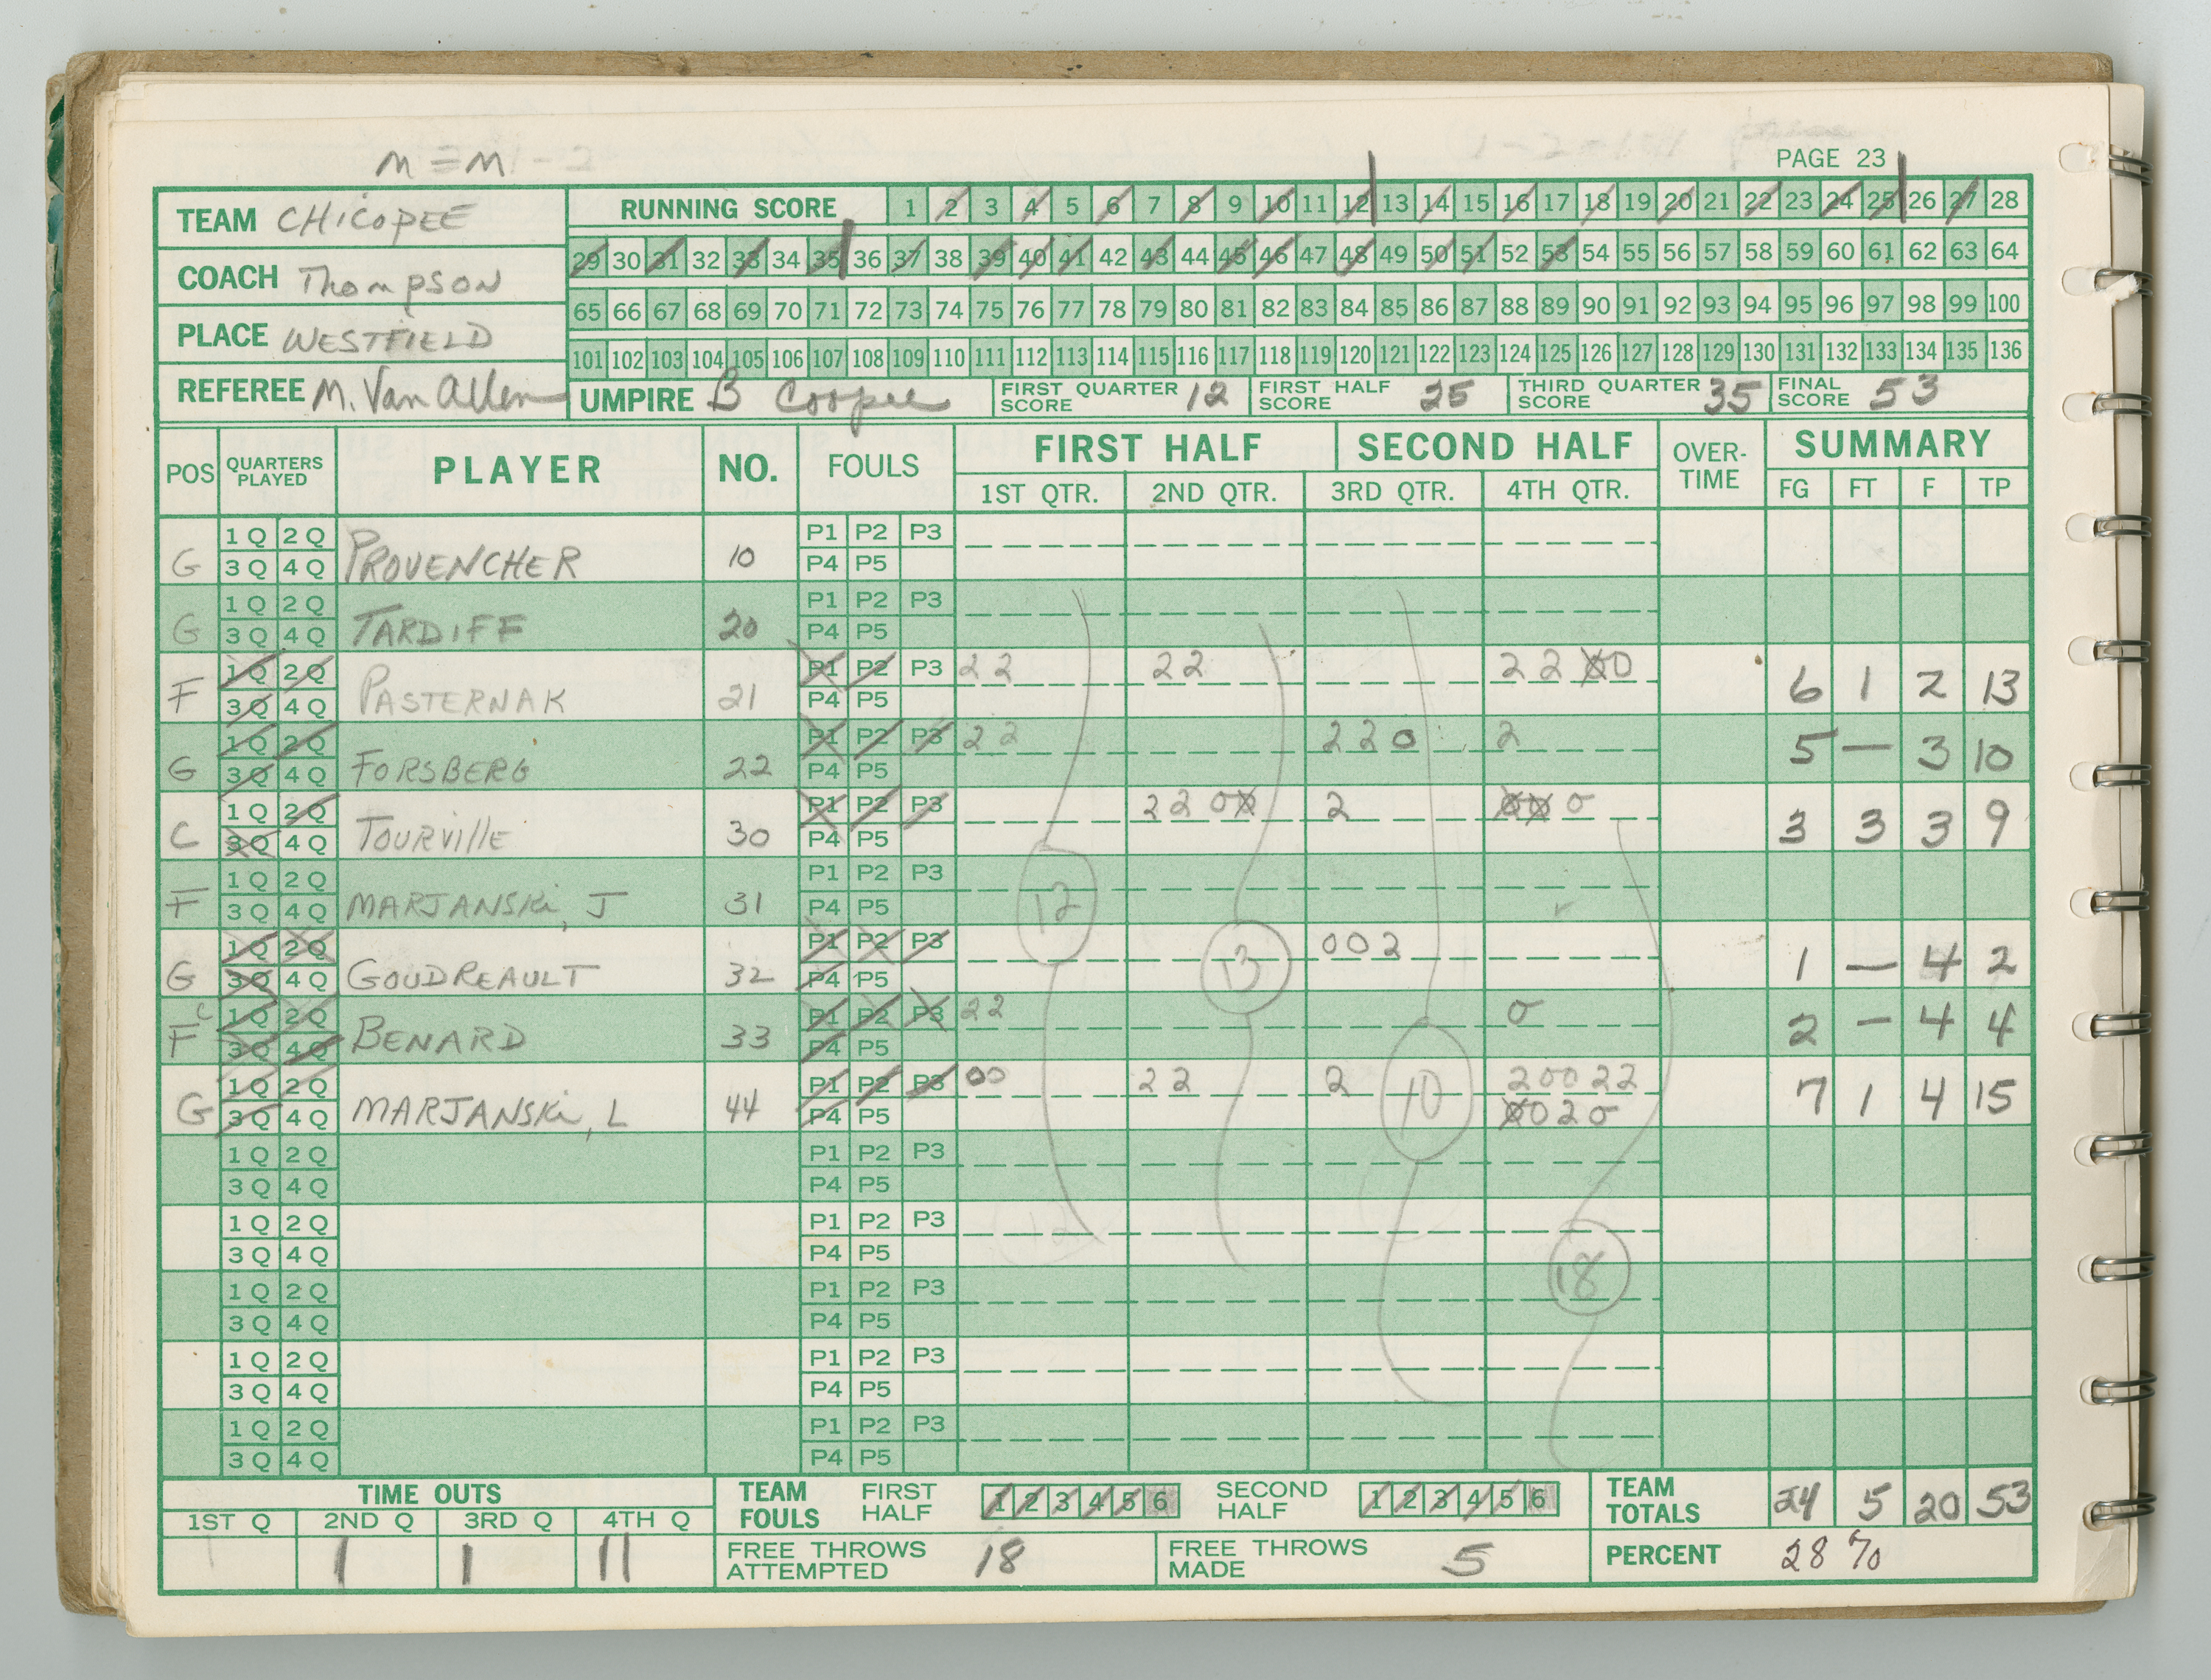 M = M
PAGE 23
TEAM CHICOPEE
COACH Thompson
PLACE WESTFIELD
REFEREE M. Van Allen
RUNNING SCORE 1 2 3 4 5 6 7 8 9 10 11 12 13 14 15 16 17 18 19 20 21 22 23 24 25 26 27 28
29 30 31 32 33 34 35 36 37 38 39 40 41 42 43 44 45 46 47 48 49 50 51 52 53 54 55 56 57 58 59 60 61 62 63 64
65 66 67 68 69 70 71 72 73 74 75 76 77 78 79 80 81 82 83 84 85 86 87 88 89 90 91 92 93 94 95 96 97 98 99 100
101 102 103 104 105 106 107 108 109 110 111 112 113 114 115 116 117 118 119 120 121 122 123 124 125 126 127 128 129 130 131 132 133 134 135 136
UMPIRE B Cooper FIRST QUARTER SCORE 12 FIRST HALF SCORE 25 THIRD QUARTER SCORE 35 FINAL SCORE 53
POS QUARTERS PLAYED PLAYER NO. FOULS FIRST HALF SECOND HALF OVER-TIME SUMMARY
1ST QTR. 2ND QTR. 3RD QTR. 4TH QTR. FG FT F TP
1Q 2Q P1 P2 P3
G 3Q 4Q PROVENCHER 10 P4 P5
1Q 2Q P1 P2 P3
G 3Q 4Q TARDIFF 20 P4 P5
1Q 2Q P1 P2 P3 22 22 22 00
F 3Q 4Q PASTERNAK 21 P4 P5 6 1 2 13
1Q 2Q P1 P2 P3 22 220 2
G 3Q 4Q FORSBERG 22 P4 P5 5 — 3 10
1Q 2Q P1 P2 P3 22 00 2 00 0
C 3Q 4Q TOURVIllE 30 P4 P5 3 3 3 9
1Q 2Q P1 P2 P3
F 3Q 4Q MARJANSKi, J 31 P4 P5
12
1Q 2Q P1 P2 P3 002
G 3Q 4Q GOUDREAULT 32 P4 P5 1 — 4 2
13
1Q 2Q P1 P2 P3 22 0
F C 3Q 4Q BENARD 33 P4 P5 2 — 4 4
1Q 2Q P1 P2 P3 00 22 2 20022
G 3Q 4Q MARJANSKi, L 44 P4 P5 0020 7 1 4 15
10
1Q 2Q P1 P2 P3
3Q 4Q P4 P5
1Q 2Q P1 P2 P3
3Q 4Q P4 P5
1Q 2Q P1 P2 P3
18
3Q 4Q P4 P5
1Q 2Q P1 P2 P3
3Q 4Q P4 P5
1Q 2Q P1 P2 P3
3Q 4Q P4 P5
TIME OUTS
1ST Q 2ND Q 3RD Q 4TH Q
1 1 1 11
TEAM FOULS FIRST HALF 1 2 3 4 5 6 SECOND HALF 1 2 3 4 5 6
TEAM TOTALS 24 5 20 53
FREE THROWS ATTEMPTED 18 FREE THROWS MADE 5 PERCENT 28 %